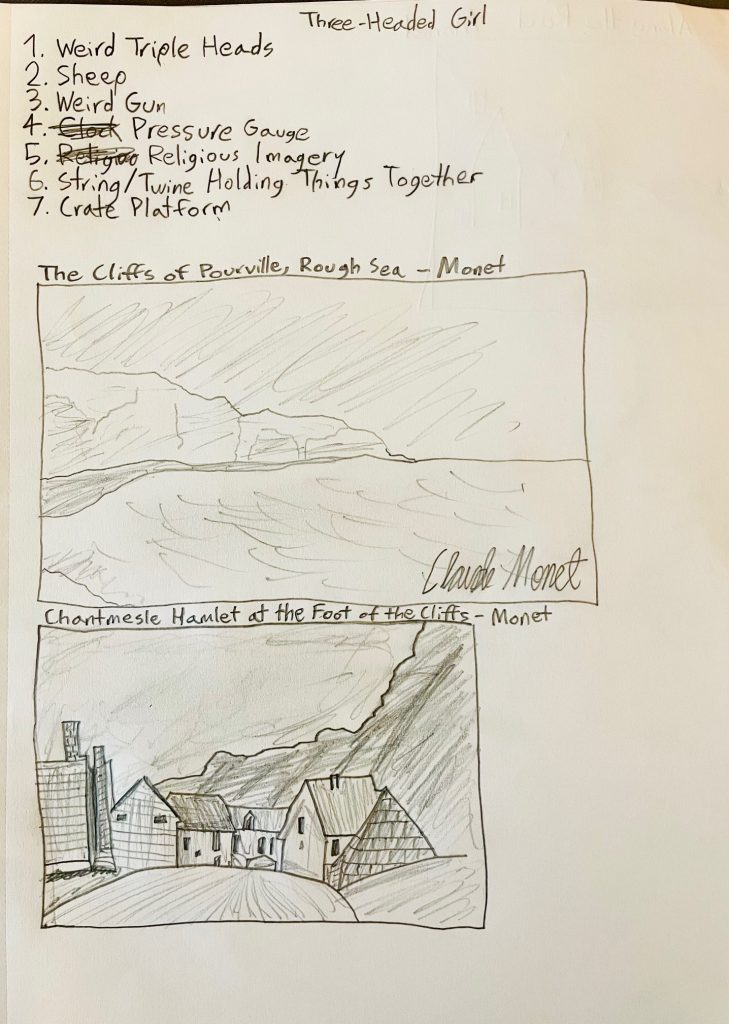 Three-Headed Girl
1. Weird Triple Heads
2. Sheep
3. Weird Gun
4. Clock Pressure Gauge
5. Religio Religious Imagery
6. String/Twine Holding Things Together
7. Crate Platform
The Cliffs of Pourville, Rough Sea - Monet
Claude Monet
Chantmesle Hamlet at the Foot of the Cliffs - Monet